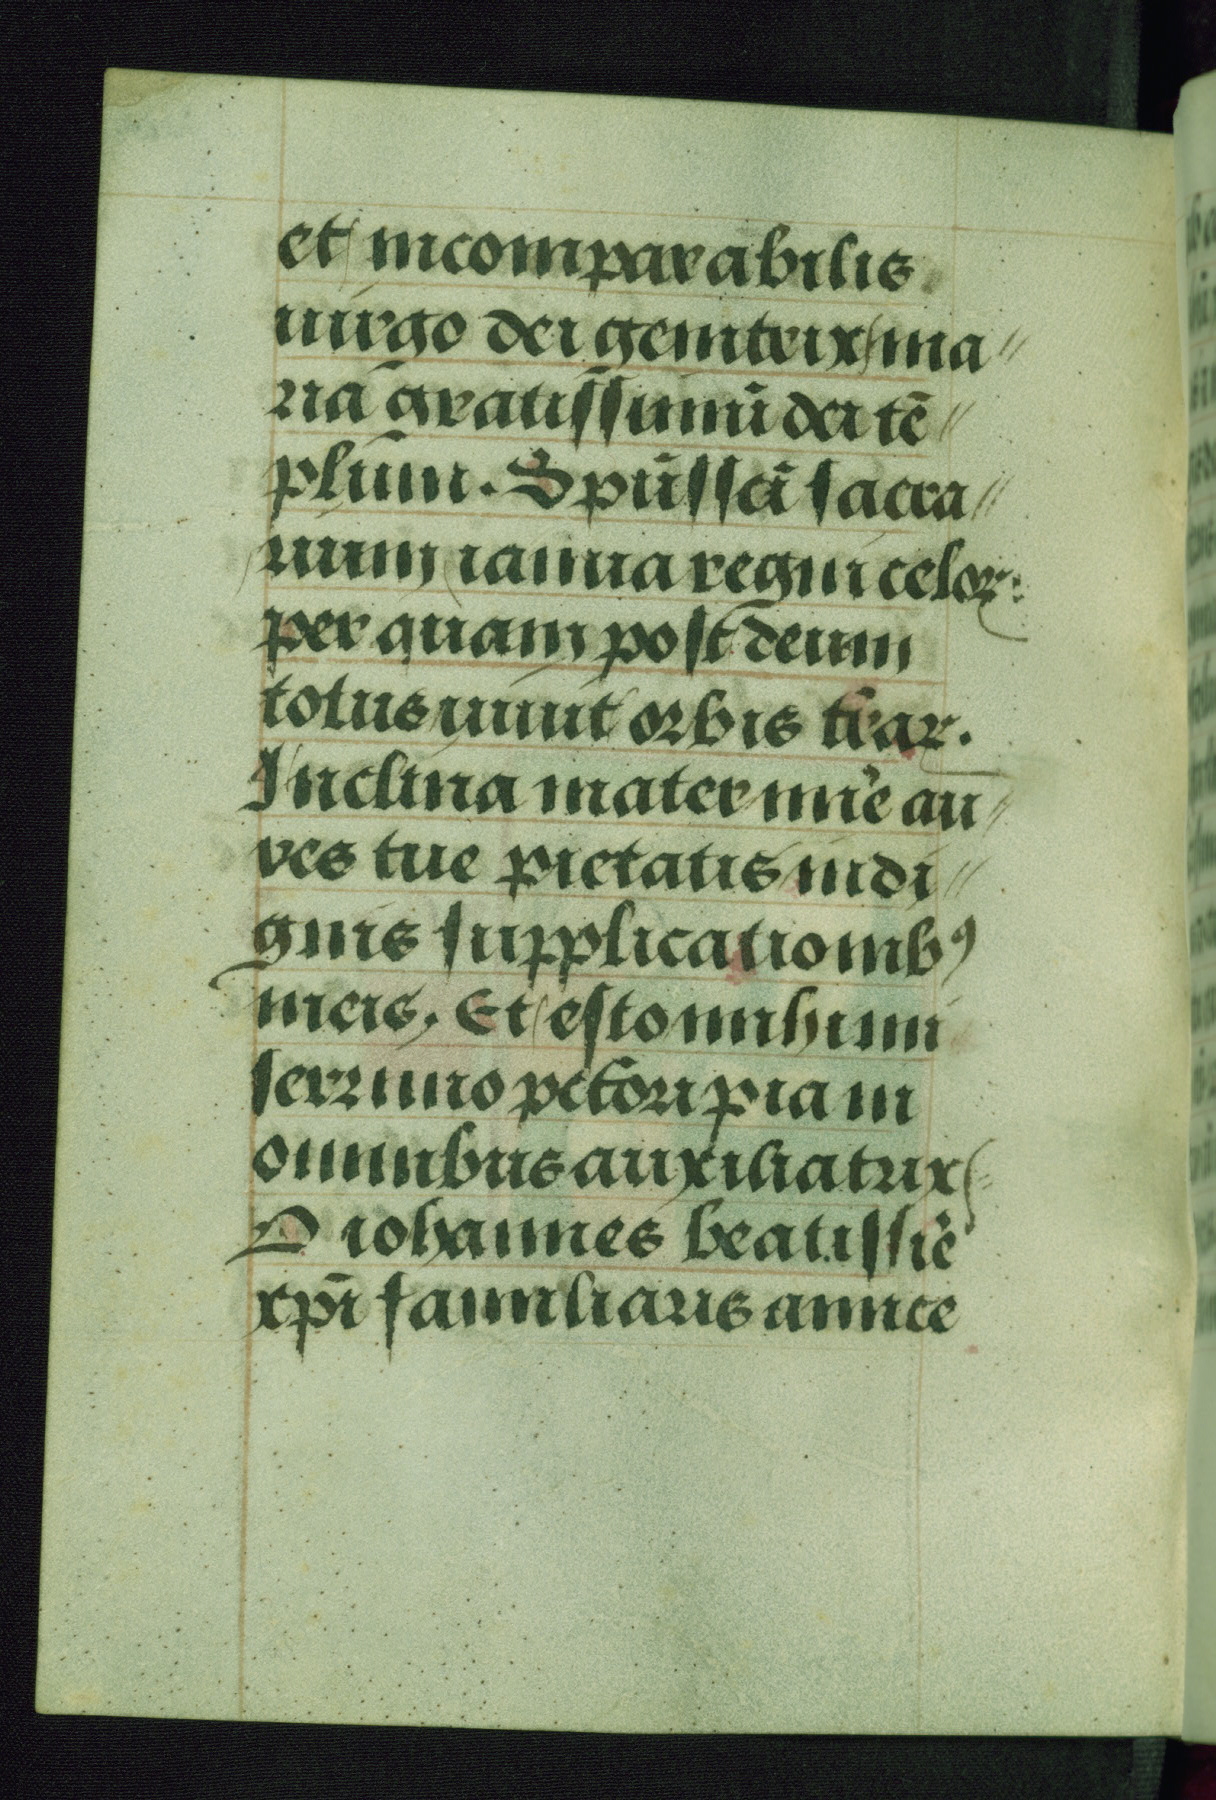 et incomparabilis
uirgo dei genitrix ma〃
ria gratissimū dei tē〃
plum. Spūs sc̄i sacra〃
rium ianua regni celoꝝ:
per quam post deum
totus uiuit orbis terraꝝ.
Inclina mater mīe au〃
res tue pietatis indi〃
gnis supplicationibꝰ
meis. Et esto michi mi
serrimo pctōri pia in
omnibus auxiliatrix
O iohannes beatissīe
xp̄i familiaris amice